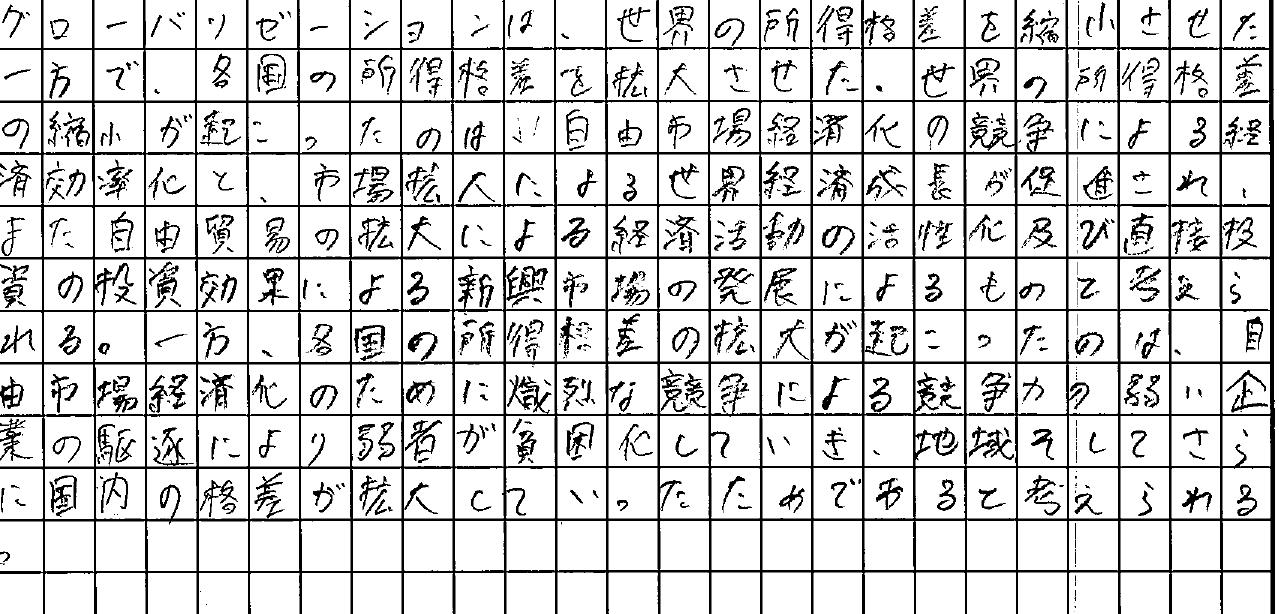 グローバリゼーションは、世界の所得格差を縮小させた
一方で、各国の所得格差を拡大させた。世界の所得格差
の縮小が起こったのは、自由市場経済化の競争による経
済効率化と、市場拡大による世界経済成長が促進され、
また自由貿易の拡大による経済活動の活性化及び直接投
資の投資効果による新興市場の発展によるものと考えら
れる。一方、各国の所得格差の拡大が起こったのは、自
由市場経済化のために熾烈な競争による競争力の弱い企
業の駆逐により弱者が貧困化していき、地域そしてさら
に国内の格差が拡大していったためであると考えられる
。